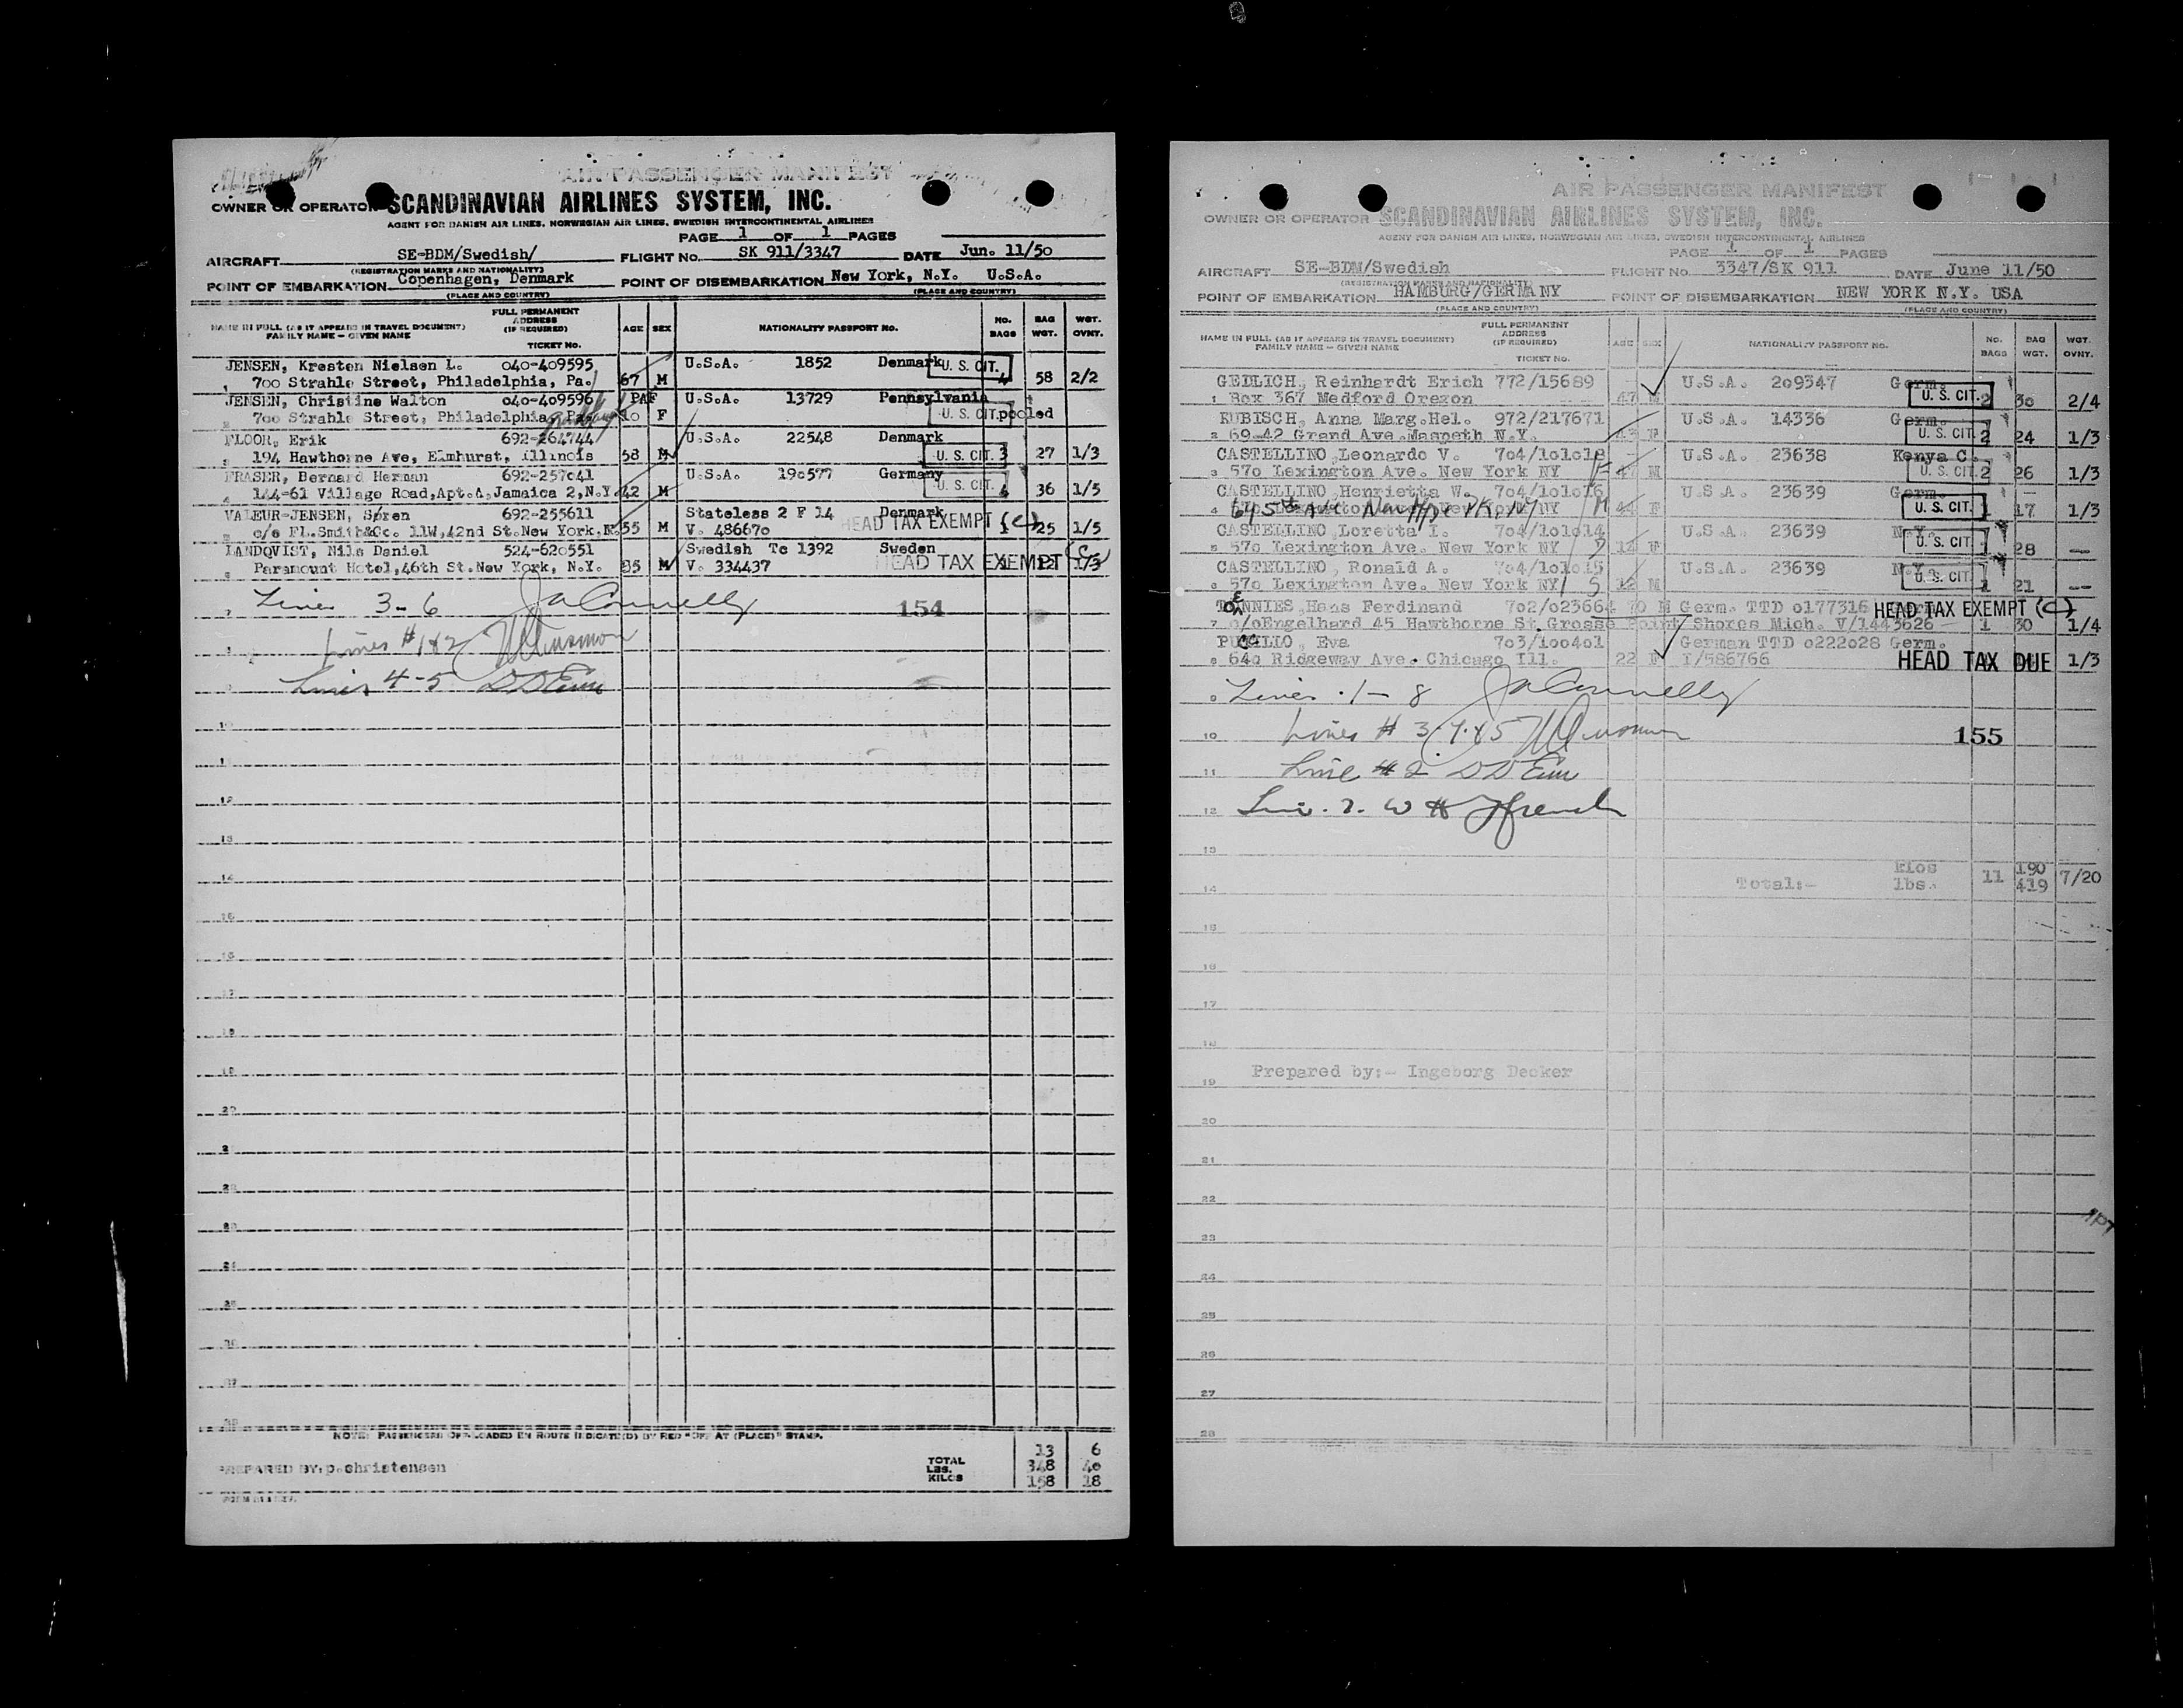 AIR PASSENGER MANIFEST
OWNER OR OPERATOR SCANDINAVIAN AIRLINES SYSTEM, INC.
AGENT FOR DANISH AIR LINES, NORWEGIAN AIR LINES, SWEDISH INTERCONTINENTAL AIRLINES
PAGE 1 OF 1 PAGES
AIRCRAFT SE-BDM/Swedish/ FLIGHT NO. SK 911/3347 DATE Jun. 11/50
(REGISTRATION MARKS AND NATIONALITY)
POINT OF EMBARKATION Copenhagen, Denmark POINT OF DISEMBARKATION New York, N.Y. U.S.A.
(PLACE AND COUNTRY) (PLACE AND COUNTRY)
NAME IN FULL (AS IT APPEARS IN TRAVEL DOCUMENT) FAMILY NAME - GIVEN NAME FULL PERMANENT ADDRESS (IF REQUIRED) TICKET NO. AGE SEX NATIONALITY PASSPORT NO. NO. BAGS BAG WGT. WGT. OVNT.
JENSEN, Kresten Nielsen L. 040-409595 U.S.A. 1852 Denmark U. S. CIT.
1 700 Strahle Street, Philadelphia, Pa. 67 M 4 58 2/2
JENSEN, Christine Walton 040-409596 PAF U.S.A. 13729 Pennsylvania
2 700 Strahle Street, Philadelphia, Pa. 10 F U. S. CIT. pooled
FLOOR, Erik 692-264744 U.S.A. 22548 Denmark
3 194 Hawthorne Ave, Elmhurst, Illinois 58 M U. S. CIT. 3 27 1/3
FRASER, Bernard Herman 692-257041 U.S.A. 190577 Germany
4 144-61 Village Road, Apt.A, Jamaica 2, N.Y. 42 M U. S. CIT. 4 36 1/5
VALEUR-JENSEN, Søren 692-255611 Stateless 2 F 14 Denmark
5 c/o FL.Smith&Co. 11W,42nd St.New York,N. 55 M V. 486670 HEAD TAX EXEMPT (C) 1 25 1/5
LANDQVIST, Nils Daniel 524-620551 Swedish Tc 1392 Sweden
6 Paramount Hotel,46th St.New York, N.Y. 35 M V. 334437 HEAD TAX EXEMPT (C) 1 12 1/3
7 Lines 3-6 Ja Connelly 154
8 Lines # 1&2
9 Lines 4-5
10
11
12
13
14
15
16
17
18
19
20
21
22
23
24
25
26
27
28
NOTE: PASSENGERS OFF-LOADED EN ROUTE INDICATE(D) BY RED "OFF AT (PLACE)" STAMP.
TOTAL 13 6
PREPARED BY: p.christensen LBS. 348 40
KILOS 158 18
AIR PASSENGER MANIFEST
OWNER OR OPERATOR SCANDINAVIAN AIRLINES SYSTEM, INC.
AGENT FOR DANISH AIR LINES, NORWEGIAN AIR LINES, SWEDISH INTERCONTINENTAL AIRLINES
PAGE 1 OF 1 PAGES
AIRCRAFT SE-BDM/Swedish FLIGHT NO. 3347/SK 911 DATE June 11/50
(REGISTRATION MARKS AND NATIONALITY)
POINT OF EMBARKATION HAMBURG/GERMANY POINT OF DISEMBARKATION NEW YORK N.Y. USA
(PLACE AND COUNTRY) (PLACE AND COUNTRY)
NAME IN FULL (AS IT APPEARS IN TRAVEL DOCUMENT) FAMILY NAME - GIVEN NAME FULL PERMANENT ADDRESS (IF REQUIRED) TICKET NO. AGE SEX NATIONALITY PASSPORT NO. NO. BAGS BAG WGT. WGT. OVNT.
GEDLICH, Reinhardt Erich 772/15689 U.S.A. 209347 Germ.
1 Box 367 Medford Oregon 47 M U. S. CIT. 2 30 2/4
KUBISCH, Anna Marg.Hel. 972/217671 U.S.A. 14336 Germ.
2 69-42 Grand Ave.Maspeth N.Y. 43 F U. S. CIT. 2 24 1/3
CASTELLINO, Leonardo V. 704/101018 U.S.A. 23638 Kenya C.
3 570 Lexington Ave. New York NY M U. S. CIT. 2 26 1/3
CASTELLINO, Henrietta W. 704/101016 U.S.A. 23639 Germ.
4 570 Lexington Ave. New York NY 44 F U. S. CIT. 1 17 1/3
CASTELLINO, Loretta I. 704/101014 U.S.A. 23639 N.Y.
5 570 Lexington Ave. New York NY F U. S. CIT. 1 28 --
CASTELLINO, Ronald A. 704/101015 U.S.A. 23639 N.Y.
6 570 Lexington Ave. New York NY S 12 M U. S. CIT. 1 21 --
TÖNNIES, Hans Ferdinand 702/023664 70 M Germ. TTD 0177316 HEAD TAX EXEMPT (C)
7 c/oEngelhard 45 Hawthorne St.Grosse Point Shores Mich. V/1443626 1 30 1/4
PUCILLO, Eva 703/100401 German TTD 0222028 Germ.
8 640 Ridgeway Ave. Chicago Ill. 22 F I/586766 HEAD TAX DUE 1/3
9 Lines 1-8 Ja Connelly
10 Lines # 3, 4 & 5 155
11 Line # 2
12 Line 7. W H French
13
14 Total:- kios lbs. 11 190 419 7/20
15
16
17
18
19 Prepared by:- Ingeborg Decker
20
21
22
23
24
25
26
27
28